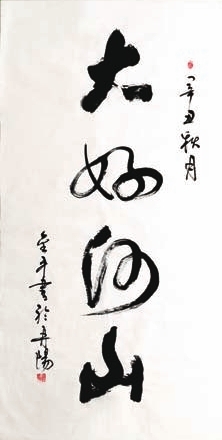 辛丑秋月
大好河山
金平書於丹陽